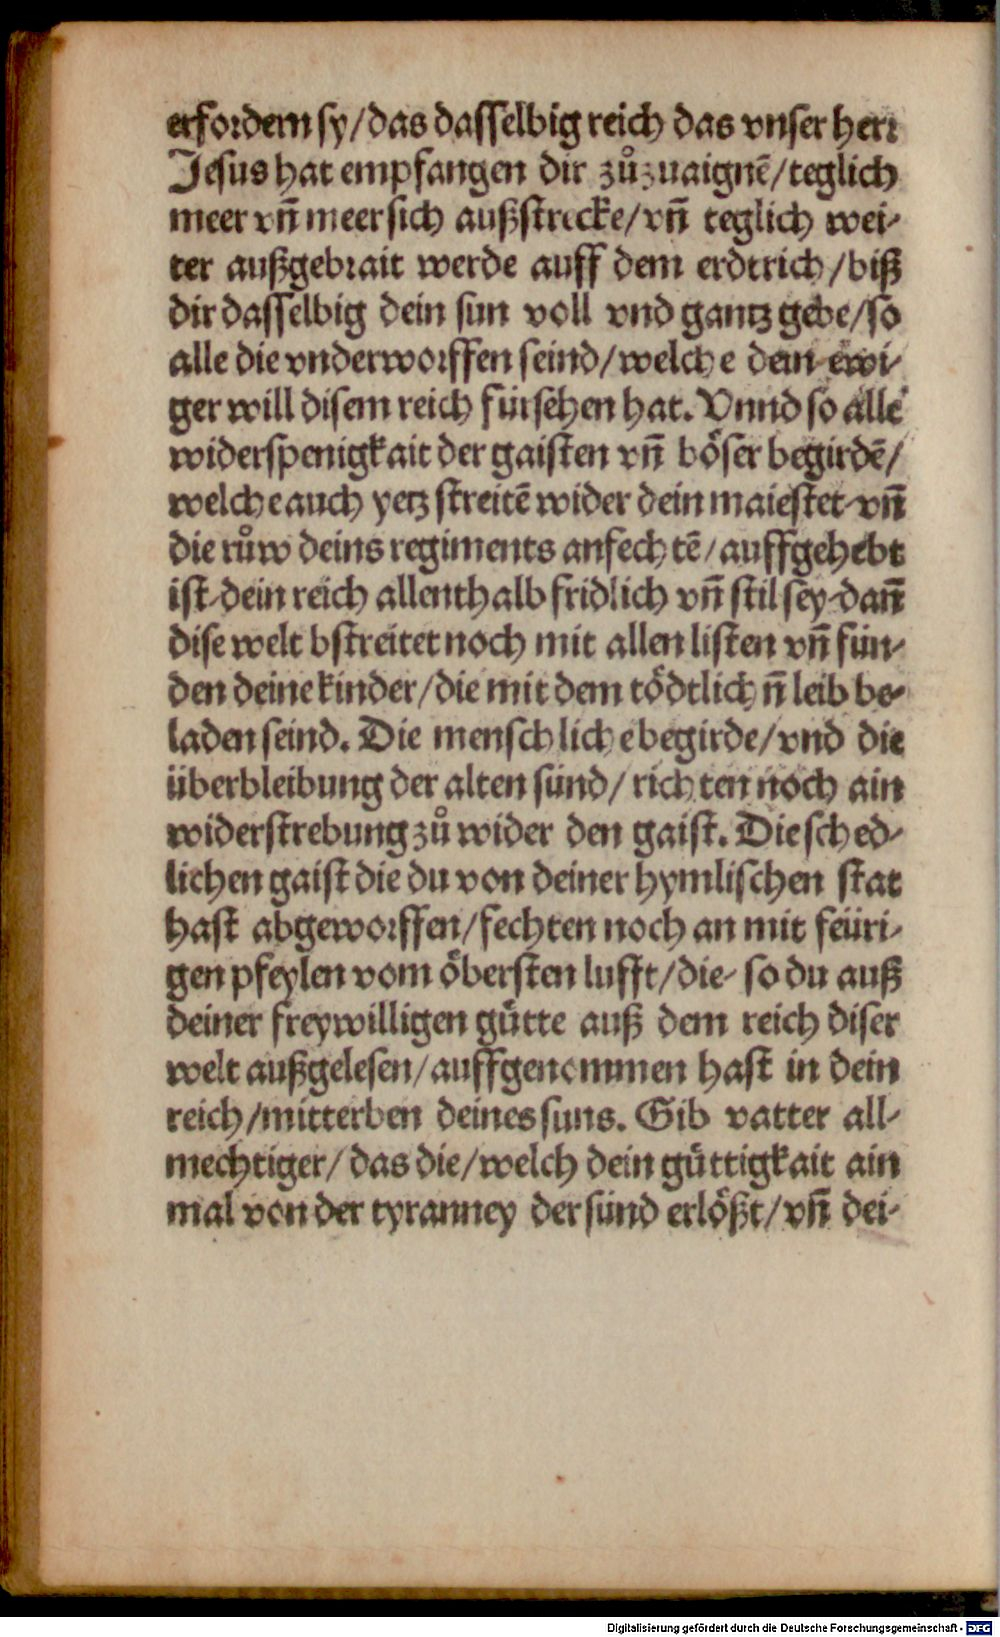 erfordern sy/das dasselbig reich das vnser herr
Jesus hat empfangen dir zůzuaignē/teglich
meer vñ meer sich außstrecke/vñ teglich wei-
ter außgebrait werde auff dem erdtrich/biß
dir dasselbig dein sun voll vnd gantz gebe/so
alle die vnderworffen seind/welche dein ewi-
ger will disem reich fürsehen hat. Vnnd so alle
widerspenigkait der gaisten vñ böser begirdē/
welche auch yetz streitē wider dein maiestet vñ
die růw deins regiments anfechtē/auffgehebt
ist dein reich allenthalb fridlich vñ stil sey dañ
dise welt bstreitet noch mit allen listen vñ fün-
den deine kinder/die mit dem tödtlichñ leib be-
laden seind. Die menschliche begirde/vnd die
überbleibung der alten sünd/richten noch ain
widerstrebung zů wider den gaist. Die sched-
lichen gaist die du von deiner hymlischen stat
hast abgeworffen/fechten noch an mit feüri-
gen pfeylen vom öbersten lufft/die- so du auß
deiner freywilligen gütte auß dem reich diser
welt außgelesen/auffgenommen hast in dein
reich/mitterben deines suns. Gib vatter all-
mechtiger/das die/welch dein güttigkait ain
mal von der tyranney der sünd erlößt/vñ dei-
Digitalisierung gefördert durch die Deutsche Forschungsgemeinschaft - DFG